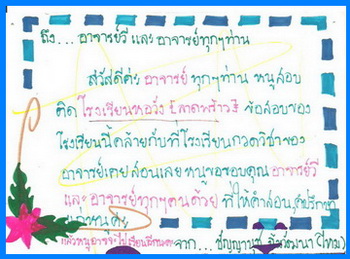 ถึง... อาจารย์วี และ อาจารย์ทุกๆท่าน
สวัสดีค่ะ อาจารย์ ทุกๆท่าน หนูสอบ
ติด โรงเรียนหอวัง (ลาดพร้าว) ข้อสอบของ
โรงเรียนนี้คล้ายกับที่โรงเรียนกวดวิชาของ
อาจารย์เคยสอนเลย หนูขอขอบคุณ อาจารย์วี
และ อาจารย์ทุกๆคนด้วย ที่ให้คำสอน, คำปรึกษา
แก่หนูค่ะ
แล้วหนูอาจจะไปเรียนอีกนะคะ จาก... (ไหม)